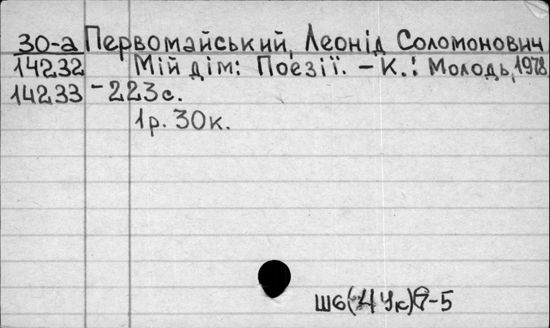 30-а Первомайський, Леонід Соломонович
14232 Мій дім: Поезії. – К.: Молодь, 1978
14233 – 223с.
1р. 30к.
Ш6(4Ук)7-5